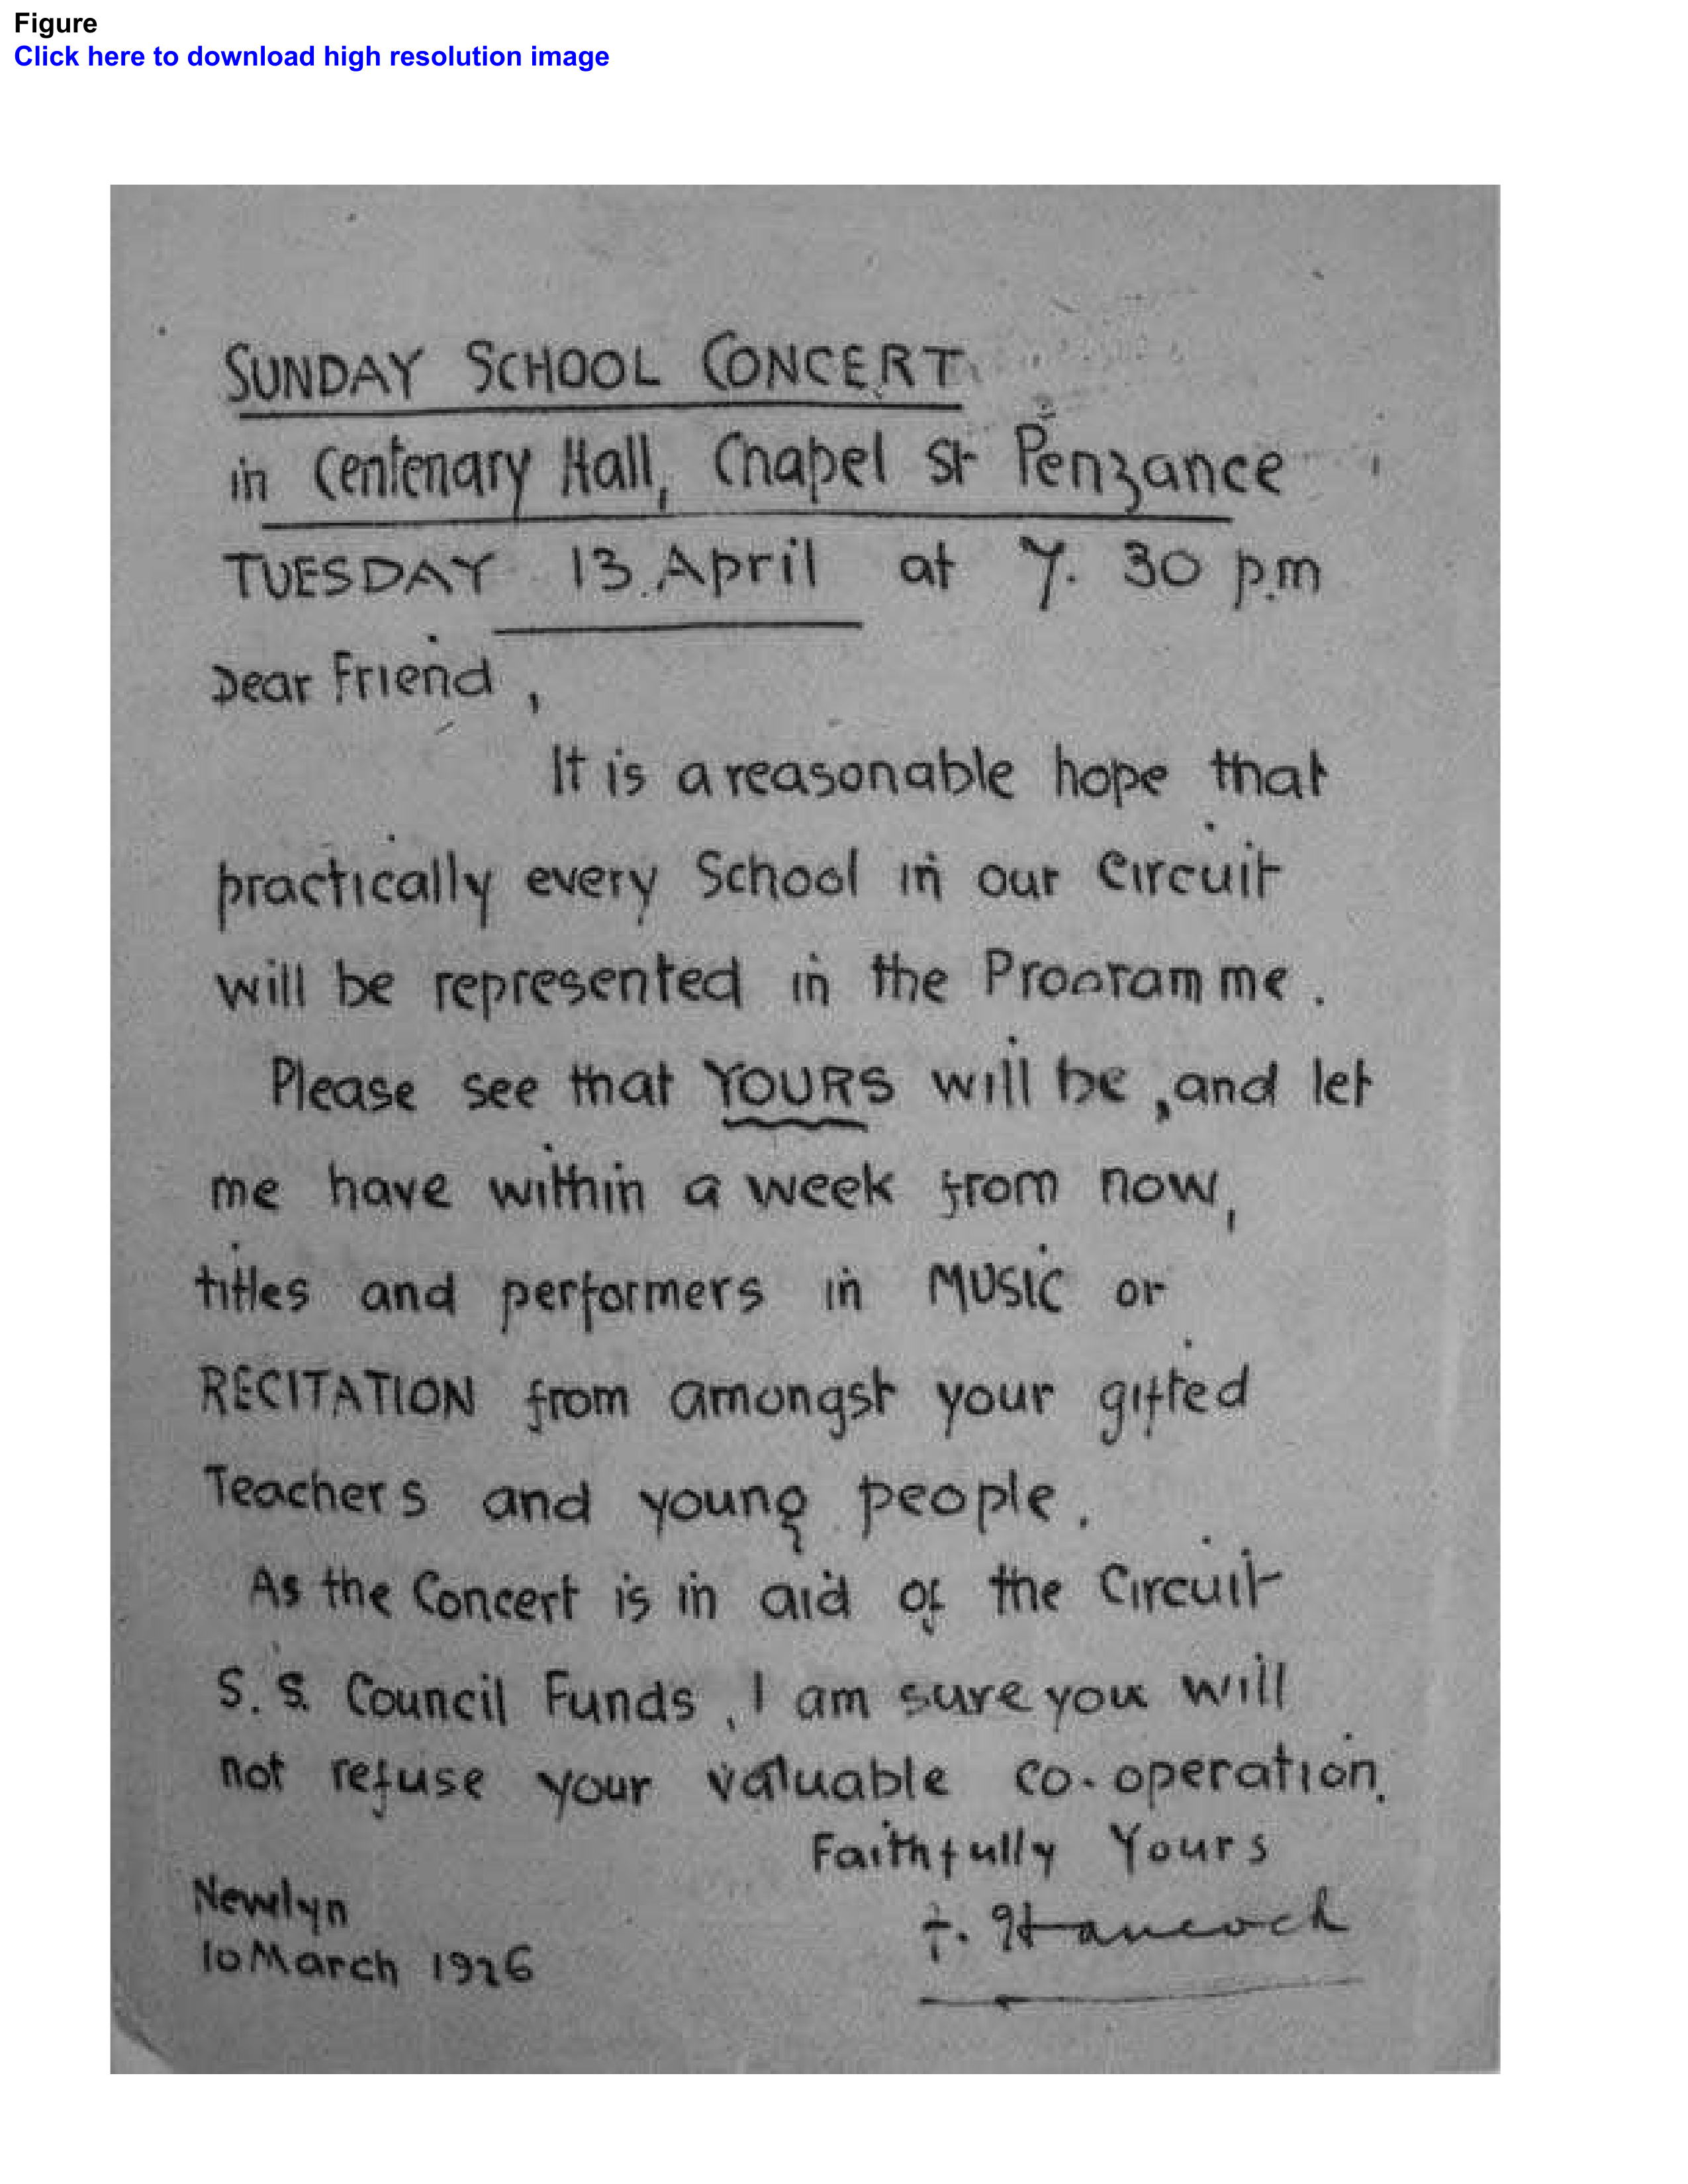 Figure
Click here to download high resolution image
SUNDAY SCHOOL CONCERT
in Centenary Hall, Chapel St Penzance
TUESDAY 13. April at 7. 30 p.m
Dear Friend,
It is a reasonable hope that
practically every School in our Circuit
will be represented in the Programme.
Please see that YOURS will be, and let
me have within a week from now,
titles and performers in MUSIC or
RECITATION from amongst your gifted
Teachers and young people.
As the Concert is in aid of the Circuit
S. S. Council Funds, I am sure you will
not refuse your valuable co-operation.
Faithfully Yours
Newlyn
F. Hancock
10 March 1926